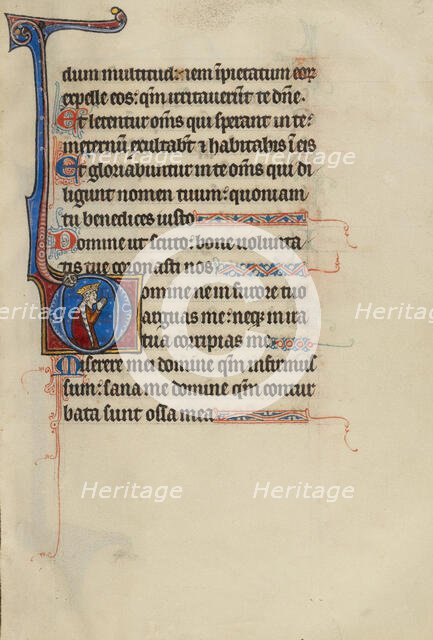 dium multitudinem impietatum eor
expelle eos: qm irritaverunt te dne.
Et letentur oms qui sperant in te:
in eternum exultabunt & habitabis in eis
Et gloriabuntur in te oms qui di
ligunt nomen tuum: quoniam
tu benedices iusto
Domine ut scuto: bone volunta
tis tue coronasti nos
Domine ne in furore tuo
arguas me: neq; in ira
tua corripias me
Miserere mei domine qm infirmus
sum: sana me domine qm contur
bata sunt ossa mea
Heritage Heritage
Heritage Heritage
Heritage Heritage